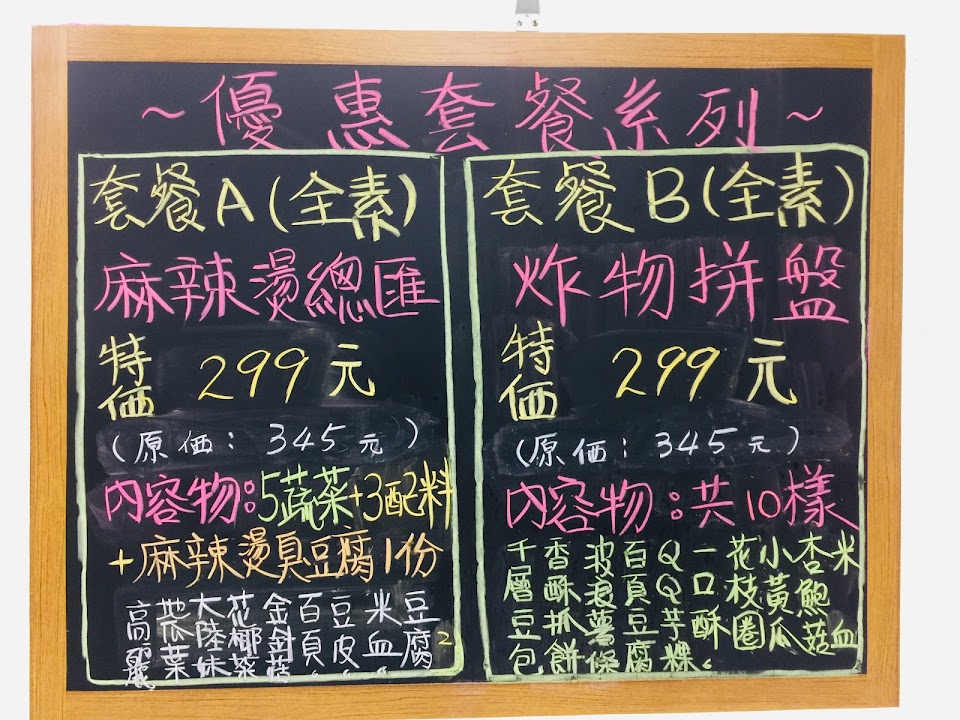 ~優惠套餐系列~
套餐A(全素)
麻辣燙總匯
特価 299元
(原価: 345元)
內容物:5蔬菜+3配料
+麻辣燙臭豆腐1份
高麗
地瓜葉
大陸妹
花椰菜
金針菇
百頁
豆皮
米血
豆腐2
套餐B(全素)
炸物拼盤
特価 299元
(原価: 345元)
內容物:共10樣
千層豆包
香酥抓餅
波浪薯條
百頁豆腐
QQ芋粿
一口酥
花枝圈
小黃瓜
杏鮑菇
米血